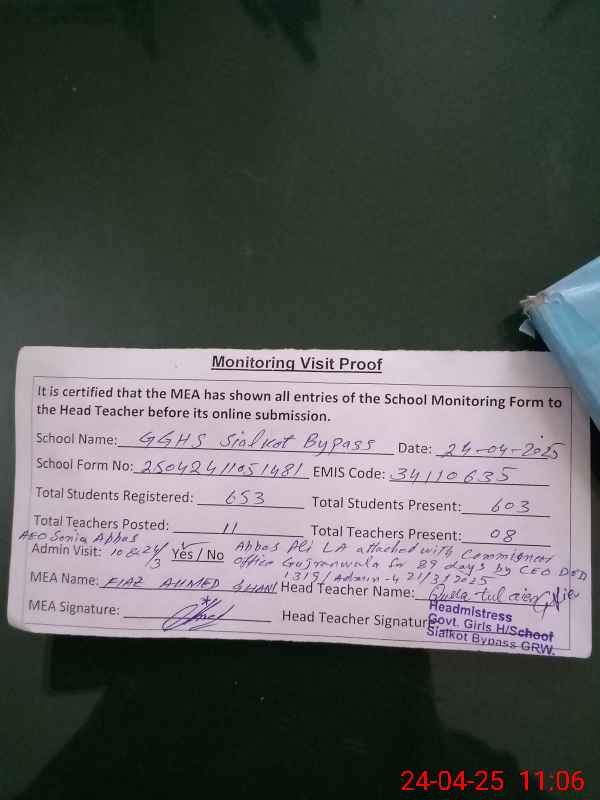 Monitoring Visit Proof
It is certified that the MEA has shown all entries of the School Monitoring Form to
the Head Teacher before its online submission.
School Name: GGHS Sialkot Bypass Date: 24-04-2025
School Form No: 25042411051481 EMIS Code: 34110635
Total Students Registered: 653 Total Students Present: 603
Total Teachers Posted: 11 Total Teachers Present: 08
AEO Sonia Abbas
Admin Visit: 10 & 24/3 Yes / No Abbas Ali LA attached with Commissioner
Office Gujranwala for 89 days by CEO DED
1319/Admin-4 21/3/2025
MEA Name: FIAZ AHMED GHANI Head Teacher Name:
MEA Signature: Head Teacher Signature:
Headmistress
Govt. Girls H/School
Sialkot Bypass GRW.
24-04-25 11:06